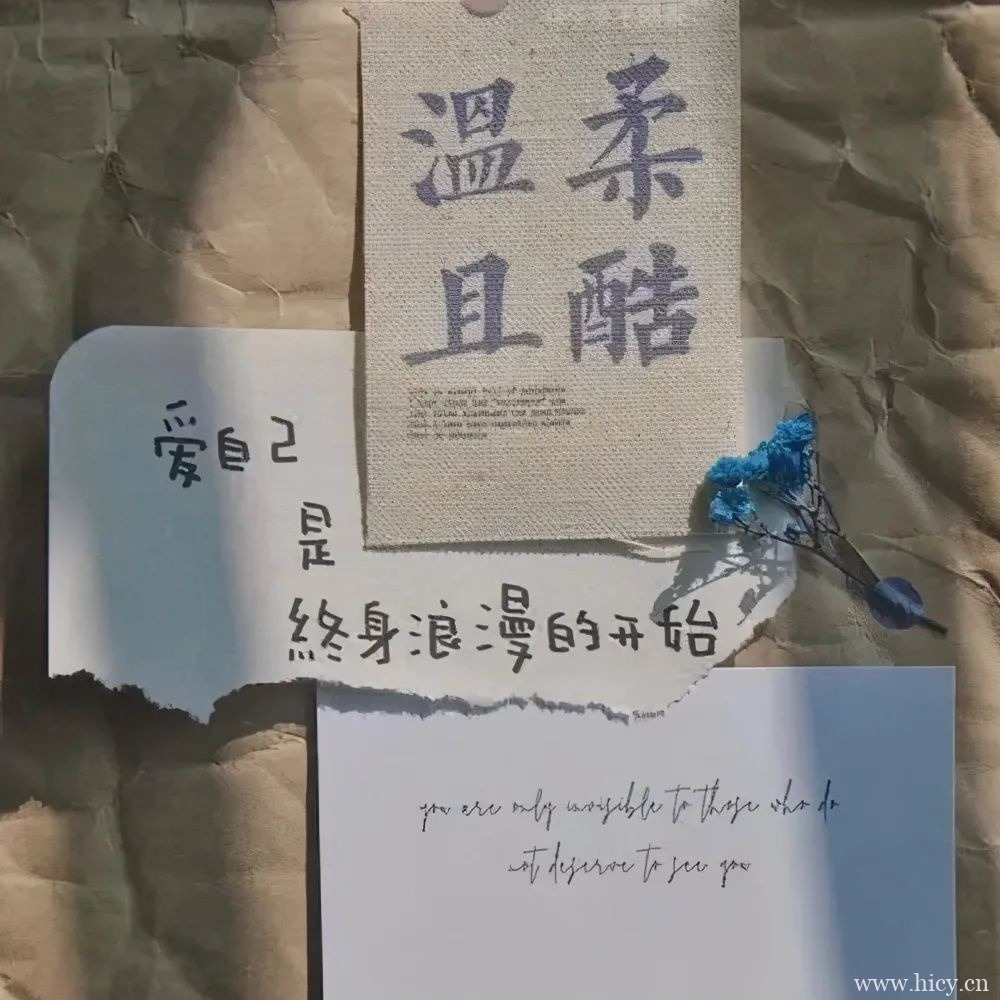 溫柔
且酷
爱自己
是
終身浪漫的开始
you are only invisible to those who do
not deserve to see you
www.hicy.cn